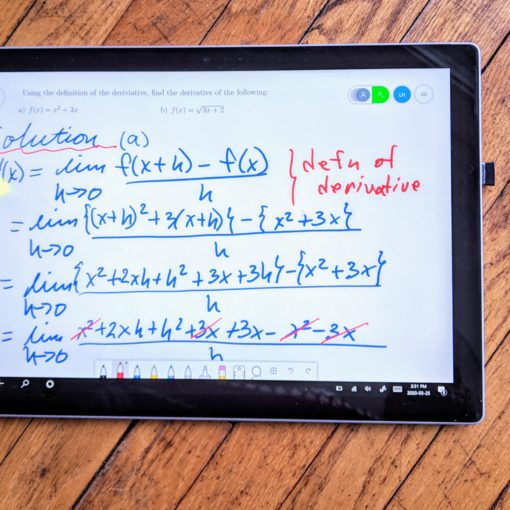 Using the definition of the deriviative, find the derivative of the following:
a) f(x) = x² + 3x b) f(x) = √(3x + 2)
Solution (a)
'(x) = lim f(x+h) - f(x) / h } defn of derivative
h→0
= lim {(x+h)² + 3(x+h)} - {x² + 3x} / h
h→0
= lim {x² + 2xh + h² + 3x + 3h} - {x² + 3x} / h
h→0
= lim x² + 2xh + h² + 3x + 3x - x² - 3x / h
h→0
LH
2:31 PM
2020-03-25